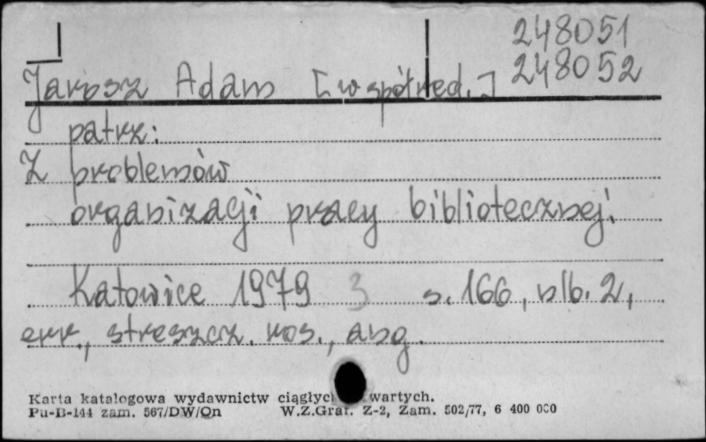 248051
Jarosz Adam [współred.] 248052
patrz:
Z problemów
organizacji pracy bibliotecznej.
Katowice 1979 3 s. 166, nlb. 2,
err., streszcz. ros., ang.
Karta katalogowa wydawnictw ciągłyc wartych.
Pu-B-144 zam. 567/DW/Qn W.Z.Graf. Z-2, Zam. 502/77, 6 400 000